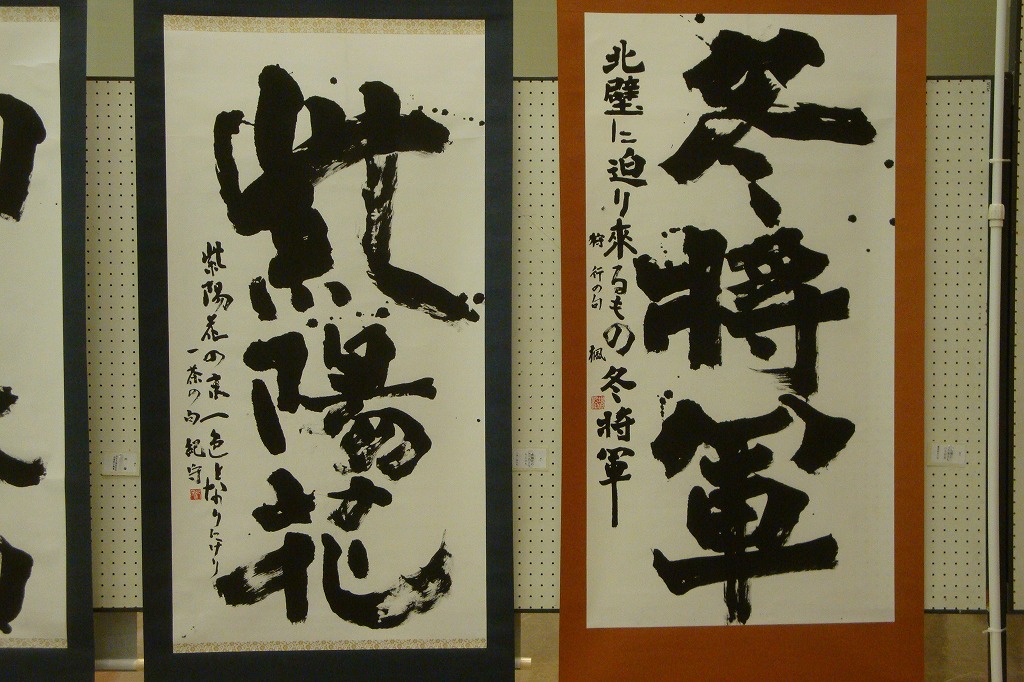 冬將軍
北壁に迫り來るもの冬將軍
狩行の句 楓
紫陽花
紫陽花の末一色となりにけり
一茶の句 記守